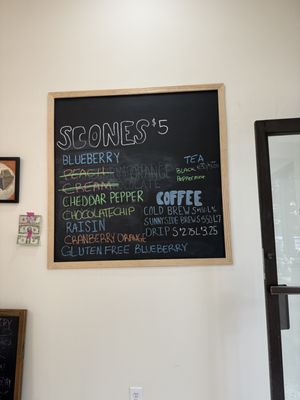 SCONES $5
BLUEBERRY
PEACH
CREAM
CHEDDAR PEPPER
CHOCOLATE CHIP
RAISIN
CRANBERRY ORANGE
GLUTEN FREE BLUEBERRY
TEA
BLACK
Peppermint
COFFEE
COLD BREW
SUNNYSIDE BREW
DRIP S $2.75 L $3.25